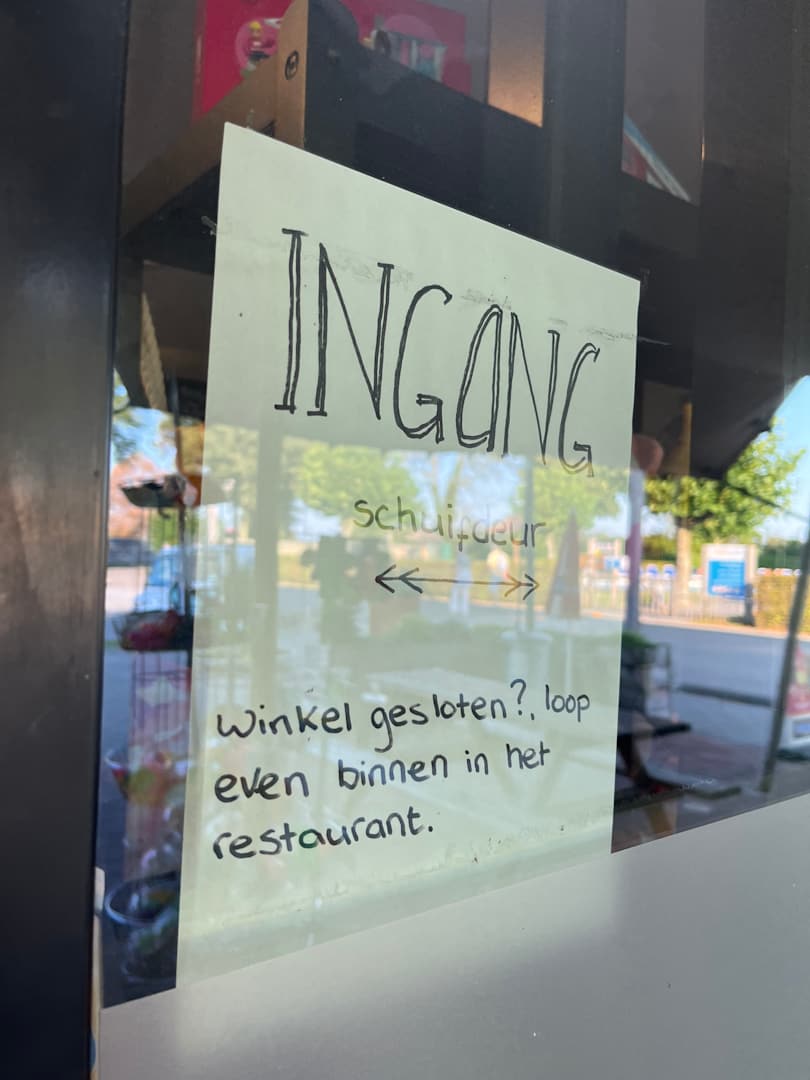 INGANG
schuifdeur
winkel gesloten?, loop
even binnen in het
restaurant.